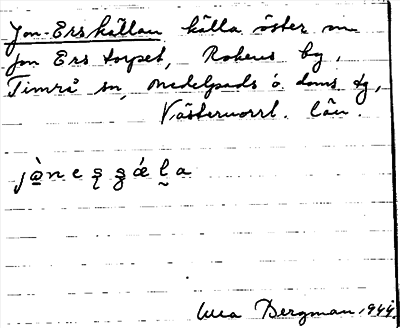 Jon-Erskällan källa öster om
Jon Ers torpet, Rokens by,
Timrå sn, Medelpads ö. doms dg,
Västernorrl. län.
jànesšǽla
Bergman 1944.